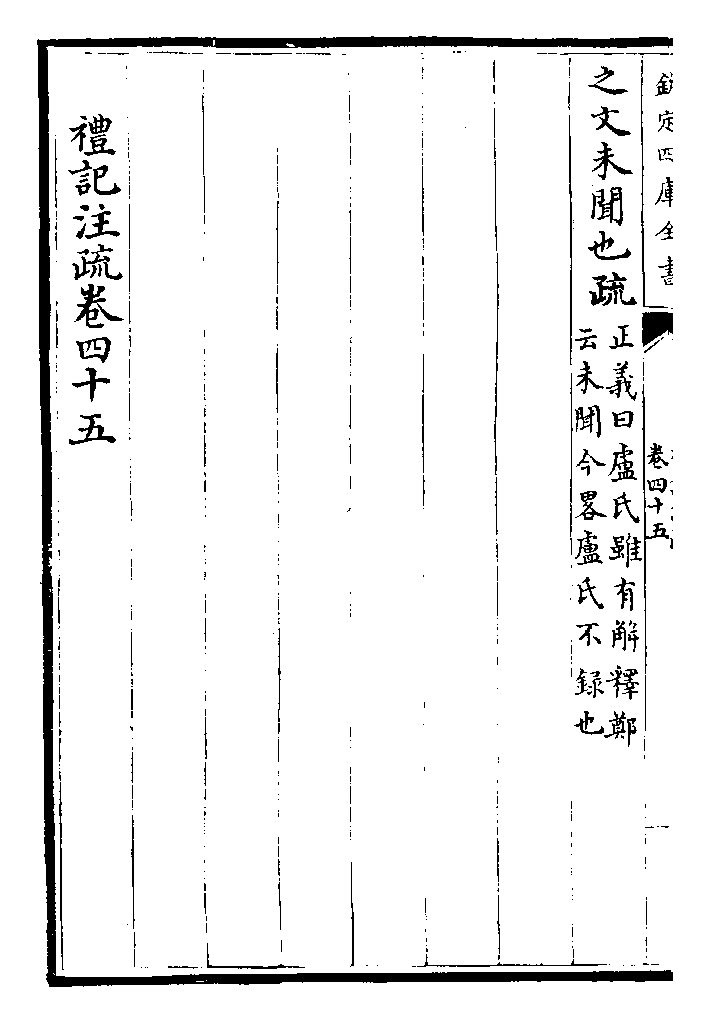 欽定四庫全書
卷四十五
之文未聞也疏
正義曰盧氏雖有解釋鄭
云未聞今畧盧氏不録也
禮記注疏卷四十五